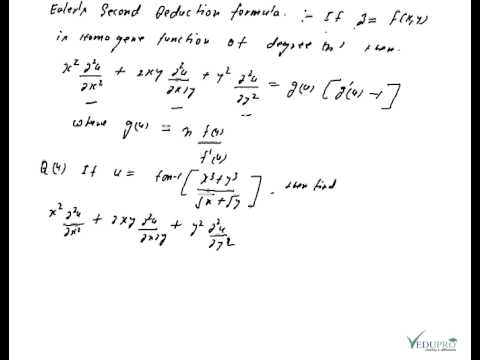 Euler's Second Deduction formula :- If z = f(x,y)
is homogene function of degree 'n' then
x² ∂²u/∂x² + 2xy ∂²u/∂x∂y + y² ∂²u/∂y² = g(u) [g'(u) - 1]
where g(u) = n f(u)/f'(u)
Q(4) If u = tan⁻¹ [x³+y³/√x+√y] . then find
x² ∂²u/∂x² + 2xy ∂²u/∂x∂y + y² ∂²u/∂y²
VEDUPRO